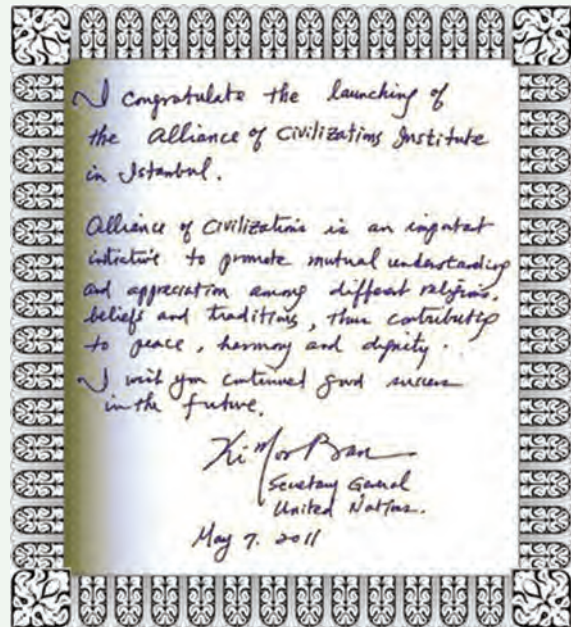 I congratulate the launching of
the Alliance of Civilizations Institute
in Istanbul.
Alliance of Civilizations is an important
initiative to promote mutual understanding
and appreciation among different religions,
beliefs and traditions, thus contributing
to peace, harmony and dignity.
I wish you continued good success
in the future.
Ki Moon Ban
Secretary General
United Nations.
May 7. 2011